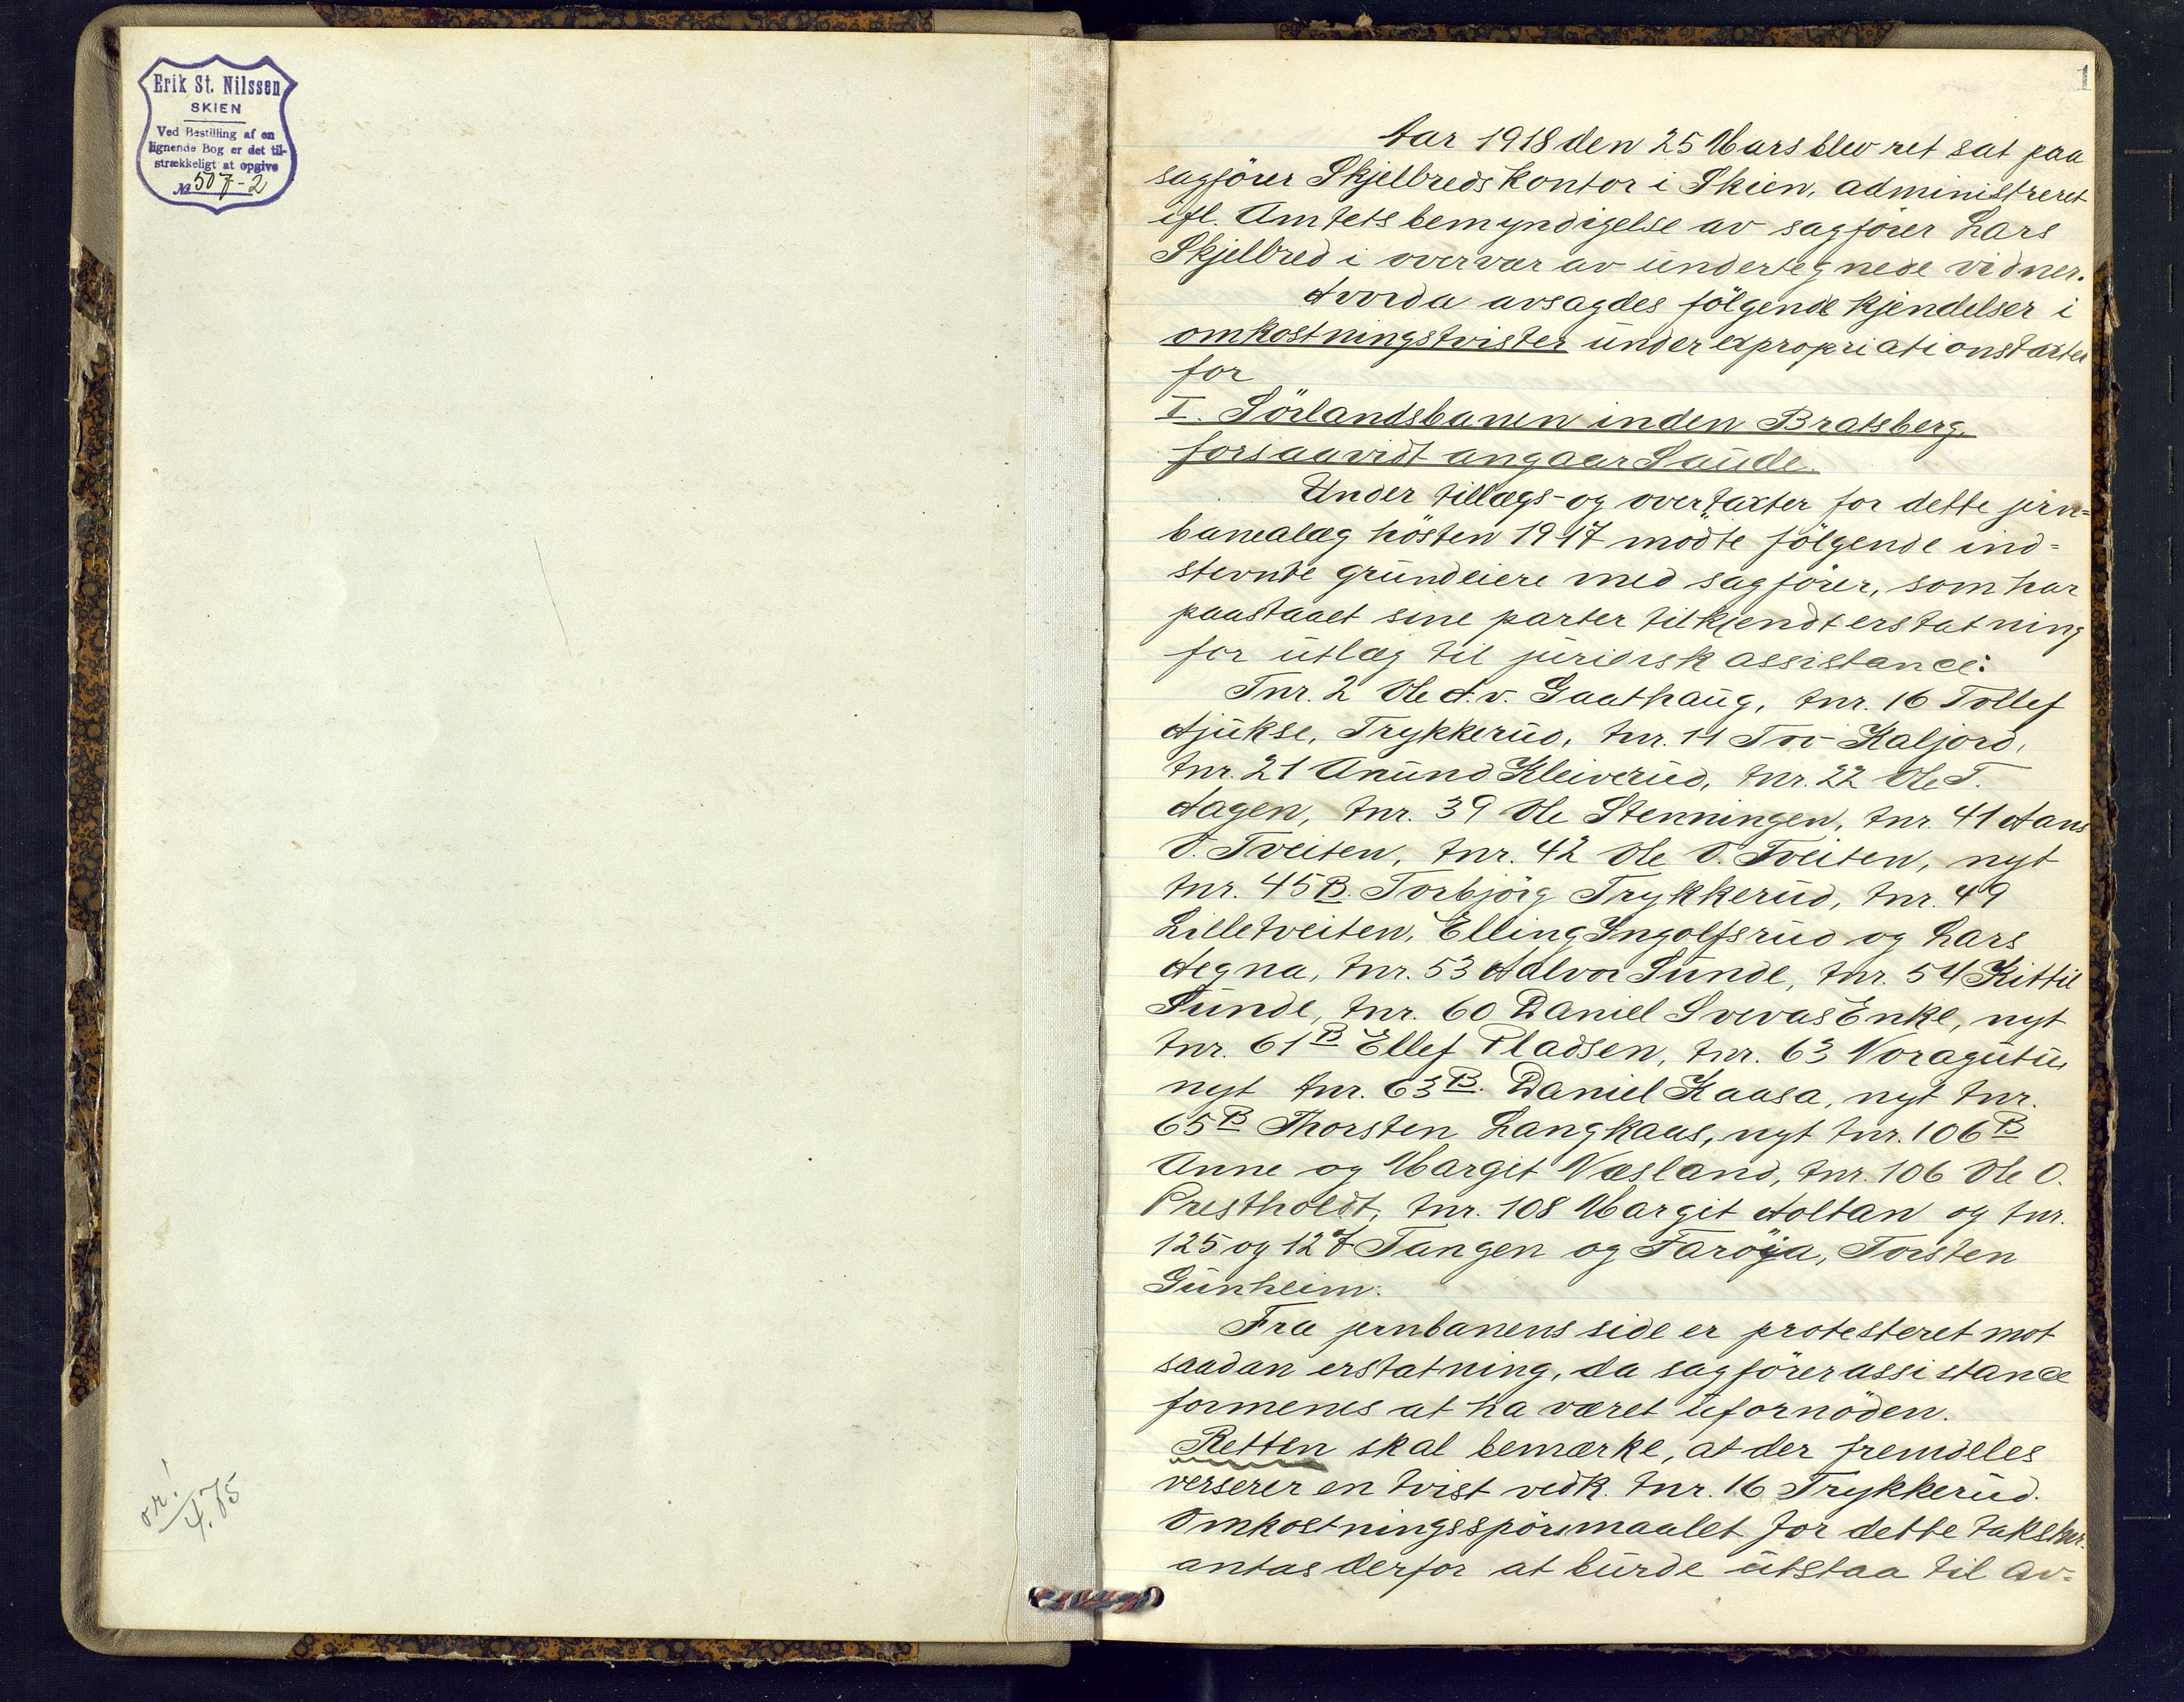 Erik St. Nilssen
SKIEN
Ved Bestilling af en
lignende Bog er det til-
strækkeligt at opgive
№ 507-2
or!
4.75
1
Aar 1918 den 25 Mars blev ret sat paa
sagförer Skjelbreds kontor i Skien, administreret
ifl. Amtets bemyndigelse av sagförer Lars
Skjelbred i overvær av undertegnede vidner.
Hvorda avsagdes fölgende kjendelser i
omkostningstvister under expropriationstaxter
for
I. Sörlandsbanen inden Bratsberg,
forsaavidt angaar Saude.
Under tillægs- og overtaxter for dette jern=
banealæg hösten 1917 mödte fölgende ind=
stevnte grundeiere med sagförer, som har
paastaaet sine parter tilkjendt erstatning
for utlæg til juridisk assistance:
Tnr. 2 Ole H. v. Gaathaug, tnr. 16 Tollef
Hjukse, Trykkerud, tnr. 11 Tov Kaljord,
tnr. 21 Anund Kleiverud, tnr. 22 Ole T.
Hagen, tnr. 39 Ole Stenningen, tnr. 41 Hans
O. Tveiten, tnr. 42 Ole O. Tveiten, nyt
tnr. 45 B. Torbjörg Trykkerud, tnr. 49
Lilletveiten, Elling Ingolfsrud og Lars
Hegna, tnr. 53 Halvor Sunde, tnr. 54 Kittil
Sunde, tnr. 60 Daniel Svevas Enke, nyt
tnr. 61 B Ellef Pladsen, tnr. 63 Noragutu,
nyt tnr. 63 B. Daniel Kaasa, nyt tnr.
65 B Thorsten Langkaas, nyt tnr. 106 B
Anne og Margit Næsland, tnr. 106 Ole O.
Prestholdt, tnr. 108 Margit Holtan og tnr.
125 og 127 Tangen og Faröya, Torsten
Gunheim.
Fra jernbanens side er protesteret mot
saadan erstatning, da sagförerassistance
formenes at ha været ufornöden.
Retten skal bemærke, at der fremdeles
verserer en tvist vedk. tnr. 16 Trykkerud.
Omkostningsspörsmaalet for dette takstnr.
antas derfor at burde utstaa til av=